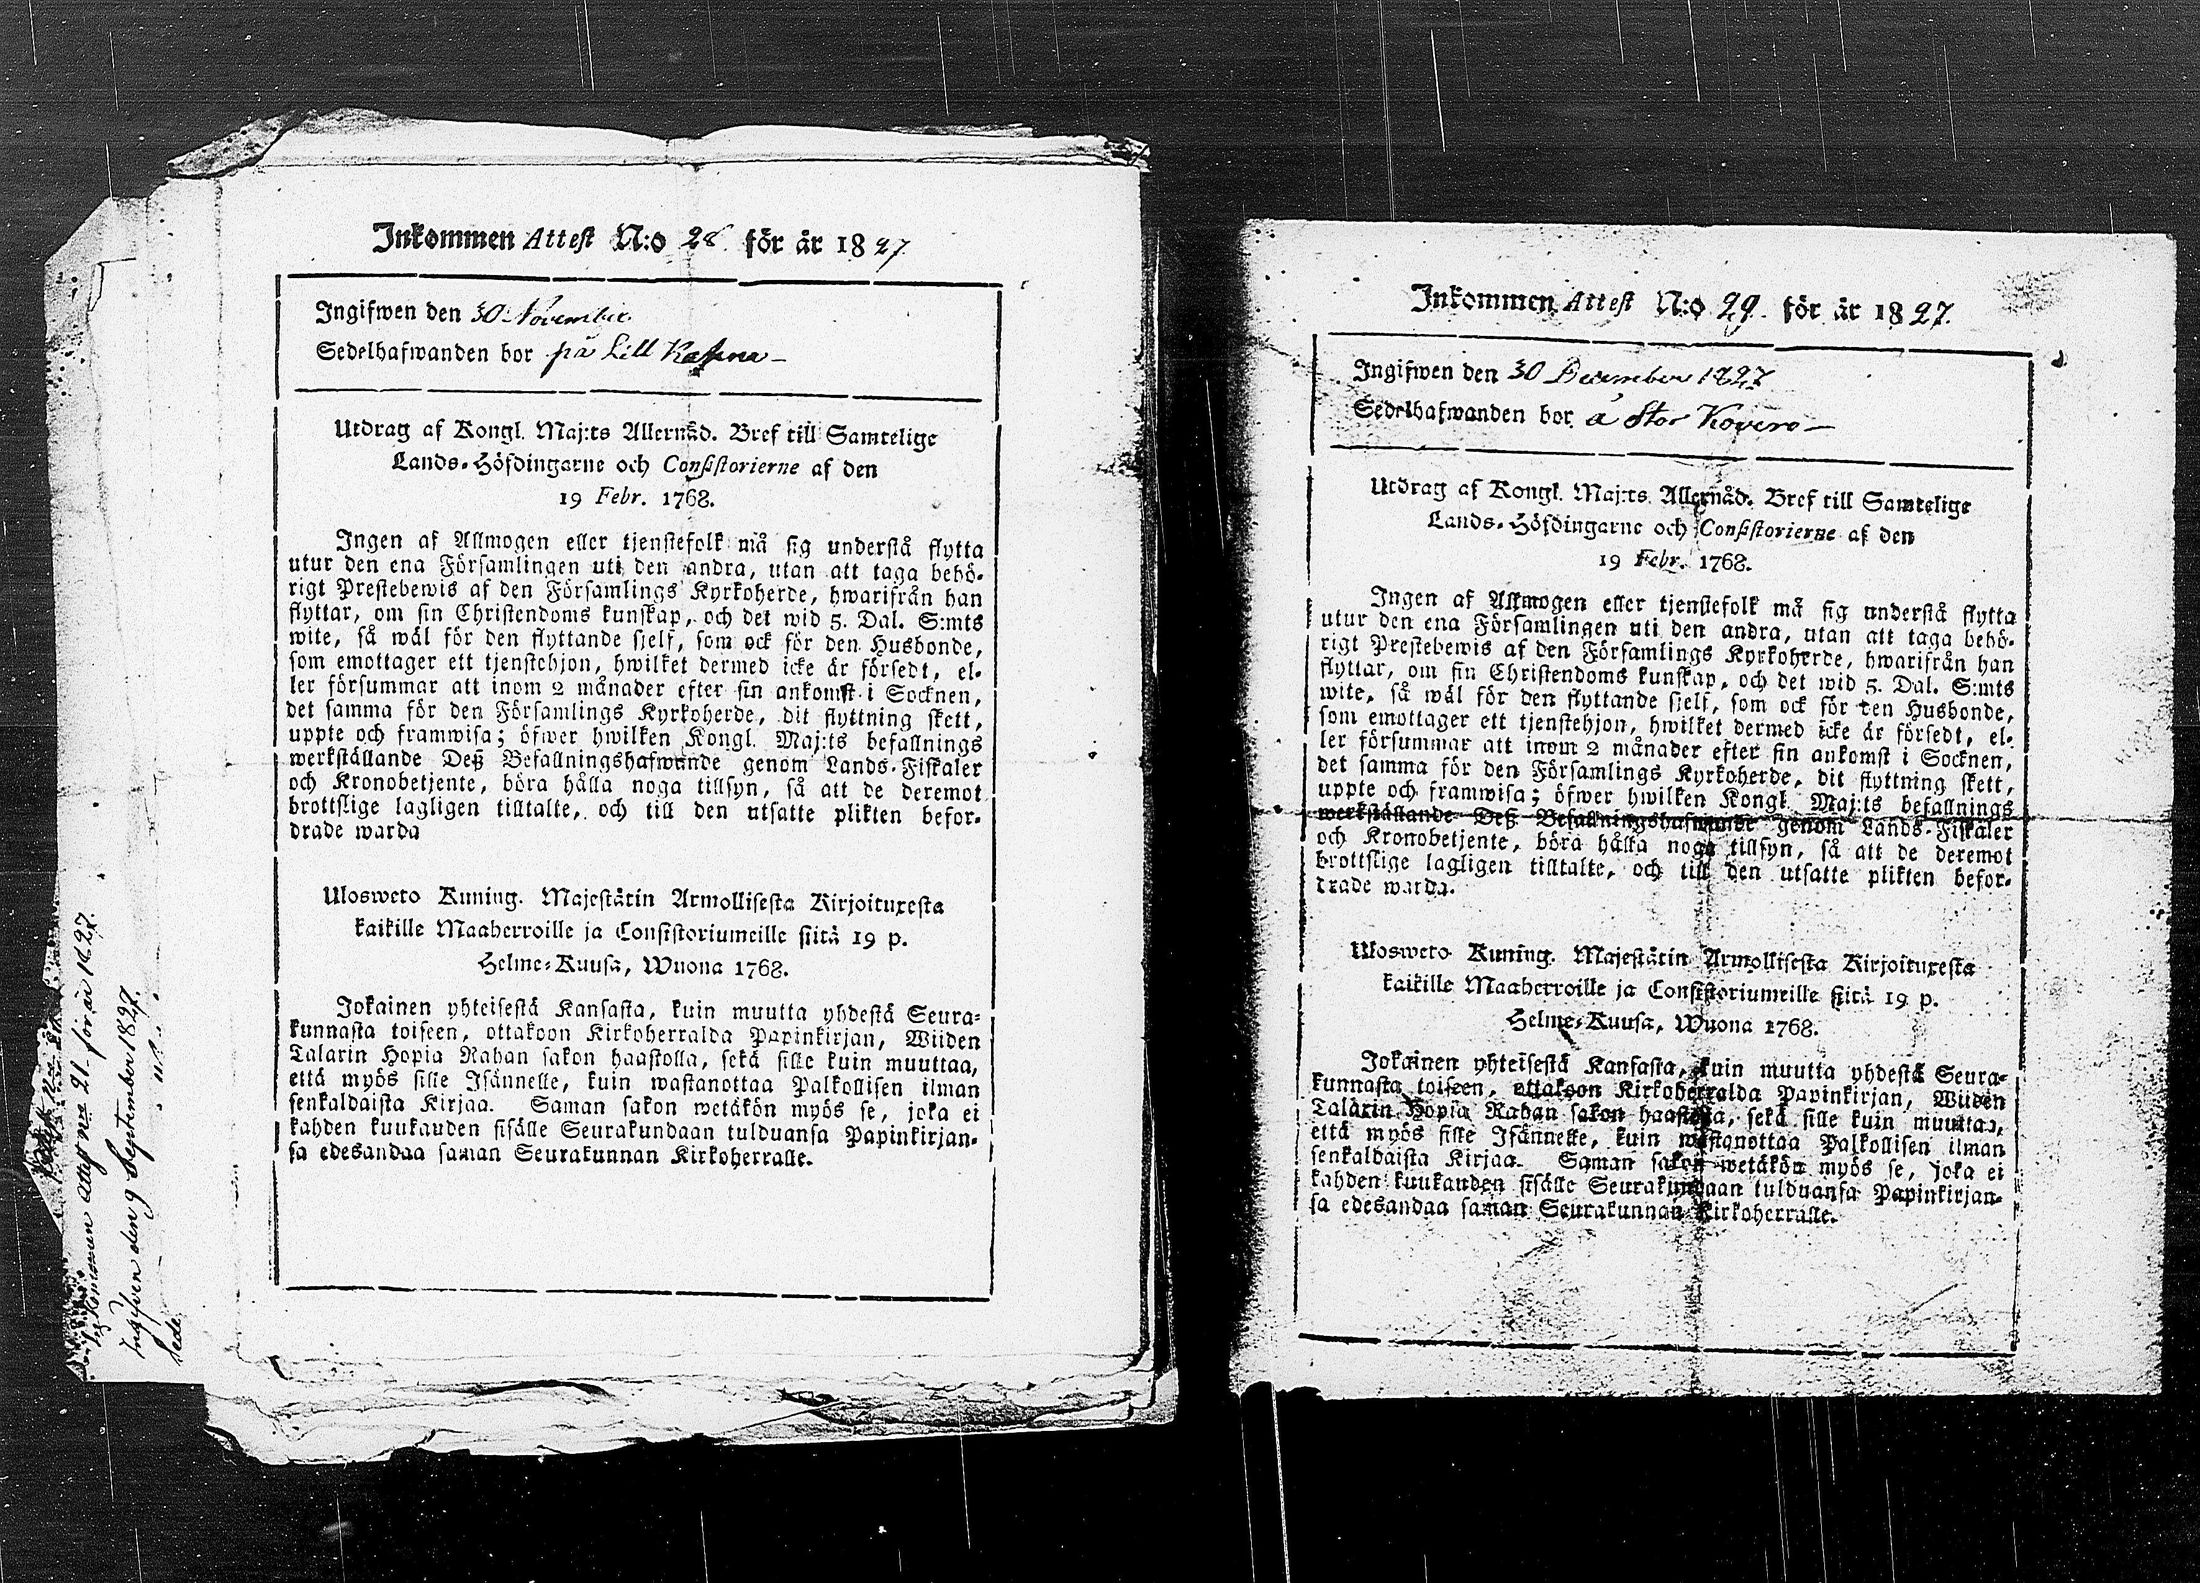 Inkommen Attest N:o 28 för år 1827.
Ingifwen den 30 November
Sedelhafwanden bor på Lill
Utdrag af Kongl. Maj:ts Allernåd. Bref till Samtelige
Lands-Höfdingarne och Consistorierne af den
19 Febr. 1768.
Ingen af Allmogen eller tjenstefolk må sig understå flytta
utur den ena Församlingen uti den andra, utan att taga behö-
rigt Prestebewis af den Församlings Kyrkoherde, hwarifrån han
flyttar, om sin Christendoms kunskap, och det wid 5. Dal. S:mts
wite, så wäl för den flyttande sjelf, som ock för den Husbonde,
som emottager ett tjenstehjon, hwilket dermed icke är försedt, el-
ler försummar att inom 2 månader efter sin ankomst i Socknen,
det samma för den Församlings Kyrkoherde, dit flyttning skett,
uppte och framwisa; öfwer hwilken Kongl. Maj:ts befallnings
werkställande Deß Befallningshafwande genom Lands-Fiskaler
och Kronobetjente, böra hålla noga tillsyn, så att de deremot
brottslige lagligen tilltalte, och till den utsatte plikten befor-
drade warda
Ulosweto Kuning. Majestätin Armollisesta Kirjoituxesta
kaikille Maaherroille ja Consistoriumeille siitä 19 p.
Helme-Kuusa, Wuona 1768.
Jokainen yhteisestä Kansasta, kuin muutta yhdestä Seura-
kunnasta toiseen, ottakoon Kirkoherralda Papinkirjan, Wiiden
Talarin Hopia Rahan sakon haastolla, sekä sille kuin muuttaa,
että myös sille Isännelle, kuin wastanottaa Palkollisen ilman
senkaldaista Kirjaa. Saman sakon wetäkön myös se, joka ei
kahden kuukauden sisälle Seurakundaan tulduansa Papinkirjan-
sa edesandaa saman Seurakunnan Kirkoherralle.
Inkommen Attest N:o 21. för år 1827.
Ingifven den 9 September 1827.
Sede
Inkommen Attest N:o 29. för år 1827.
Ingifwen den 30 December 1827
Sedelhafwanden bor å Stor Kovero
Utdrag af Kongl. Maj:ts Allernåd. Bref till Samtelige
Lands-Höfdingarne och Consistorierne af den
19 Febr. 1768.
Ingen af Allmogen eller tjenstefolk må sig understå flytta
utur den ena Församlingen uti den andra, utan att taga behö-
rigt Prestebewis af den Församlings Kyrkoherde, hwarifrån han
flyttar, om sin Christendoms kunskap, och det wid 5. Dal. S:mts
wite, så wäl för den flyttande sjelf, som ock för den Husbonde,
som emottager ett tjenstehjon, hwilket dermed icke är försedt, el-
ler försummar att inom 2 månader efter sin ankomst i Socknen,
det samma för den Församlings Kyrkoherde, dit flyttning skett,
uppte och framwisa; öfwer hwilken Kongl. Maj:ts befallnings
werkställande Deß Befallningshafwande genom Lands-Fiskaler
och Kronobetjente, böra hålla noga tillsyn, så att de deremot
brottslige lagligen tilltalte, och till den utsatte plikten befor-
drade warda.
Ulosweto Kuning. Majestätin Armollisesta Kirjoituxesta
kaikille Maaherroille ja Consistoriumeille siitä 19 p.
Helme-Kuusa, Wuona 1768.
Jokainen yhteisestä Kansasta, kuin muutta yhdestä Seura-
kunnasta toiseen, ottakoon Kirkoherralda Papinkirjan, Wiiden
Talarin Hopia Rahan sakon haastolla, sekä sille kuin muuttaa,
että myös sille Isännelle, kuin wastanottaa Palkollisen ilman
senkaldaista Kirjaa. Saman sakon wetäkön myös se, joka ei
kahden kuukauden sisälle Seurakundaan tulduansa Papinkirjan-
sa edesandaa saman Seurakunnan Kirkoherralle.